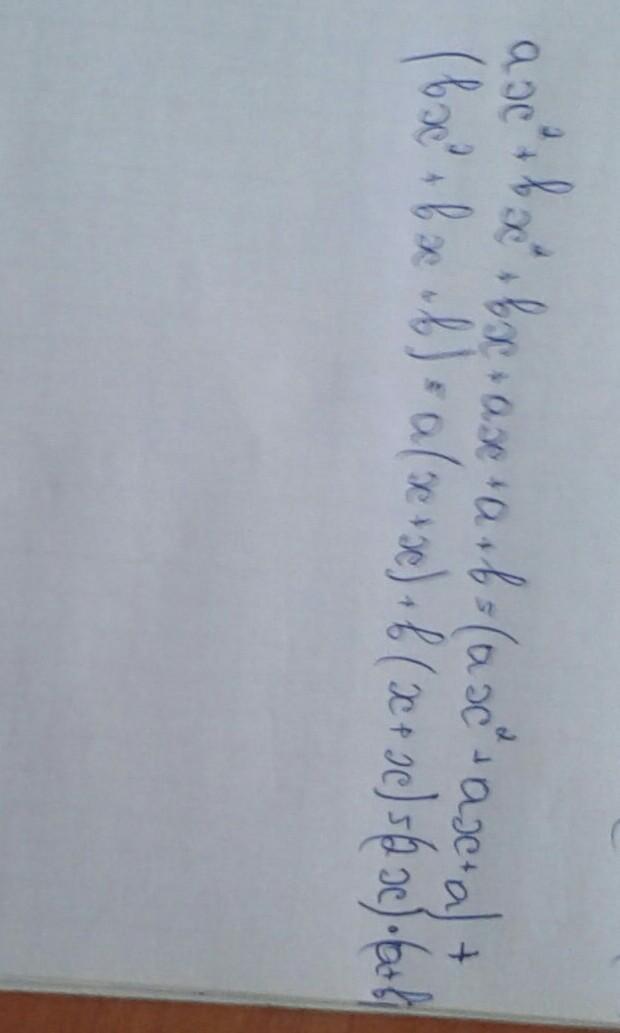 ax² + bx² + bx + ax + a + b = (ax² + ax + a) +
(bx² + bx + b) = a(x+x) + b(x+x) = (2x)·(a+b)